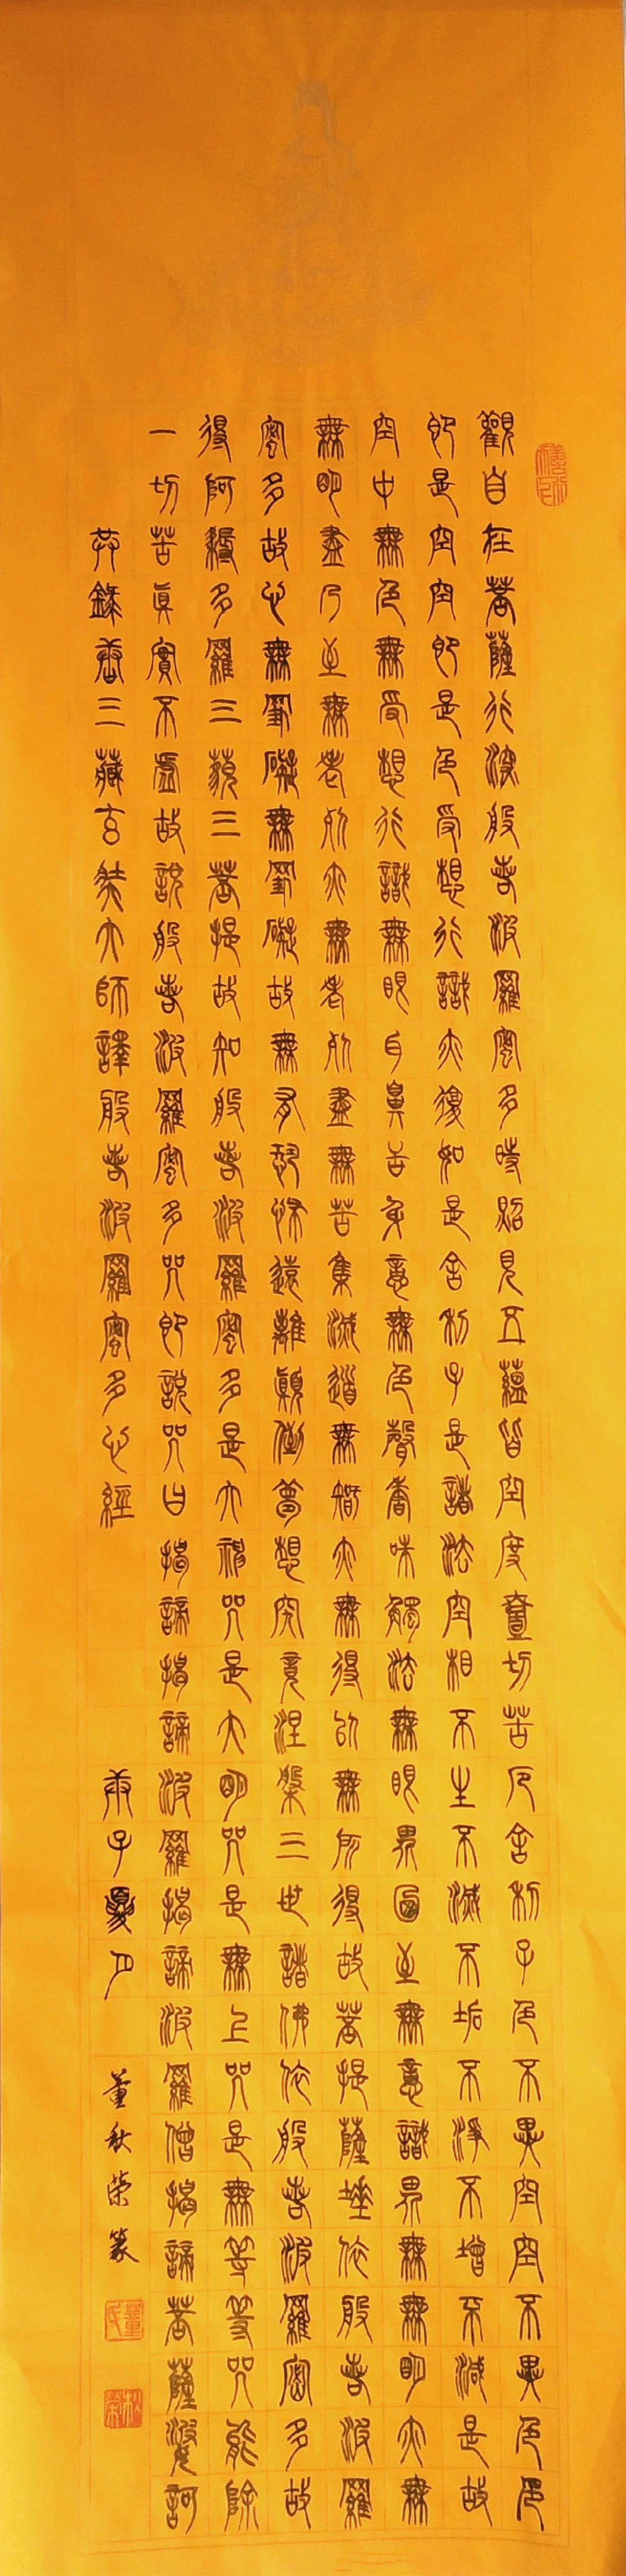 觀自在菩薩行深般若波羅蜜多時照見五蘊皆空度壹切苦厄舍利子色不異空空不異色色
即是空空即是色受想行識亦復如是舍利子是諸法空相不生不滅不垢不淨不增不減是故
空中無色無受想行識無眼耳鼻舌身意無色聲香味觸法無眼界乃至無意識界無無明亦無
無明盡乃至無老死亦無老死盡無苦集滅道無智亦無得以無所得故菩提薩埵依般若波羅
蜜多故心無罣礙無罣礙故無有恐怖遠離顛倒夢想究竟涅槃三世諸佛依般若波羅密多故
得阿耨多羅三藐三菩提故知般若波羅蜜多是大神咒是大明咒是無上咒是無等等咒能除
一切苦真實不虛故說般若波羅蜜多咒即說咒曰揭諦揭諦波羅揭諦波羅僧揭諦菩薩婆訶
恭錄唐三藏玄奘大師譯般若波羅蜜多心經 庚子夏月 董秋榮篆
董氏
秋榮